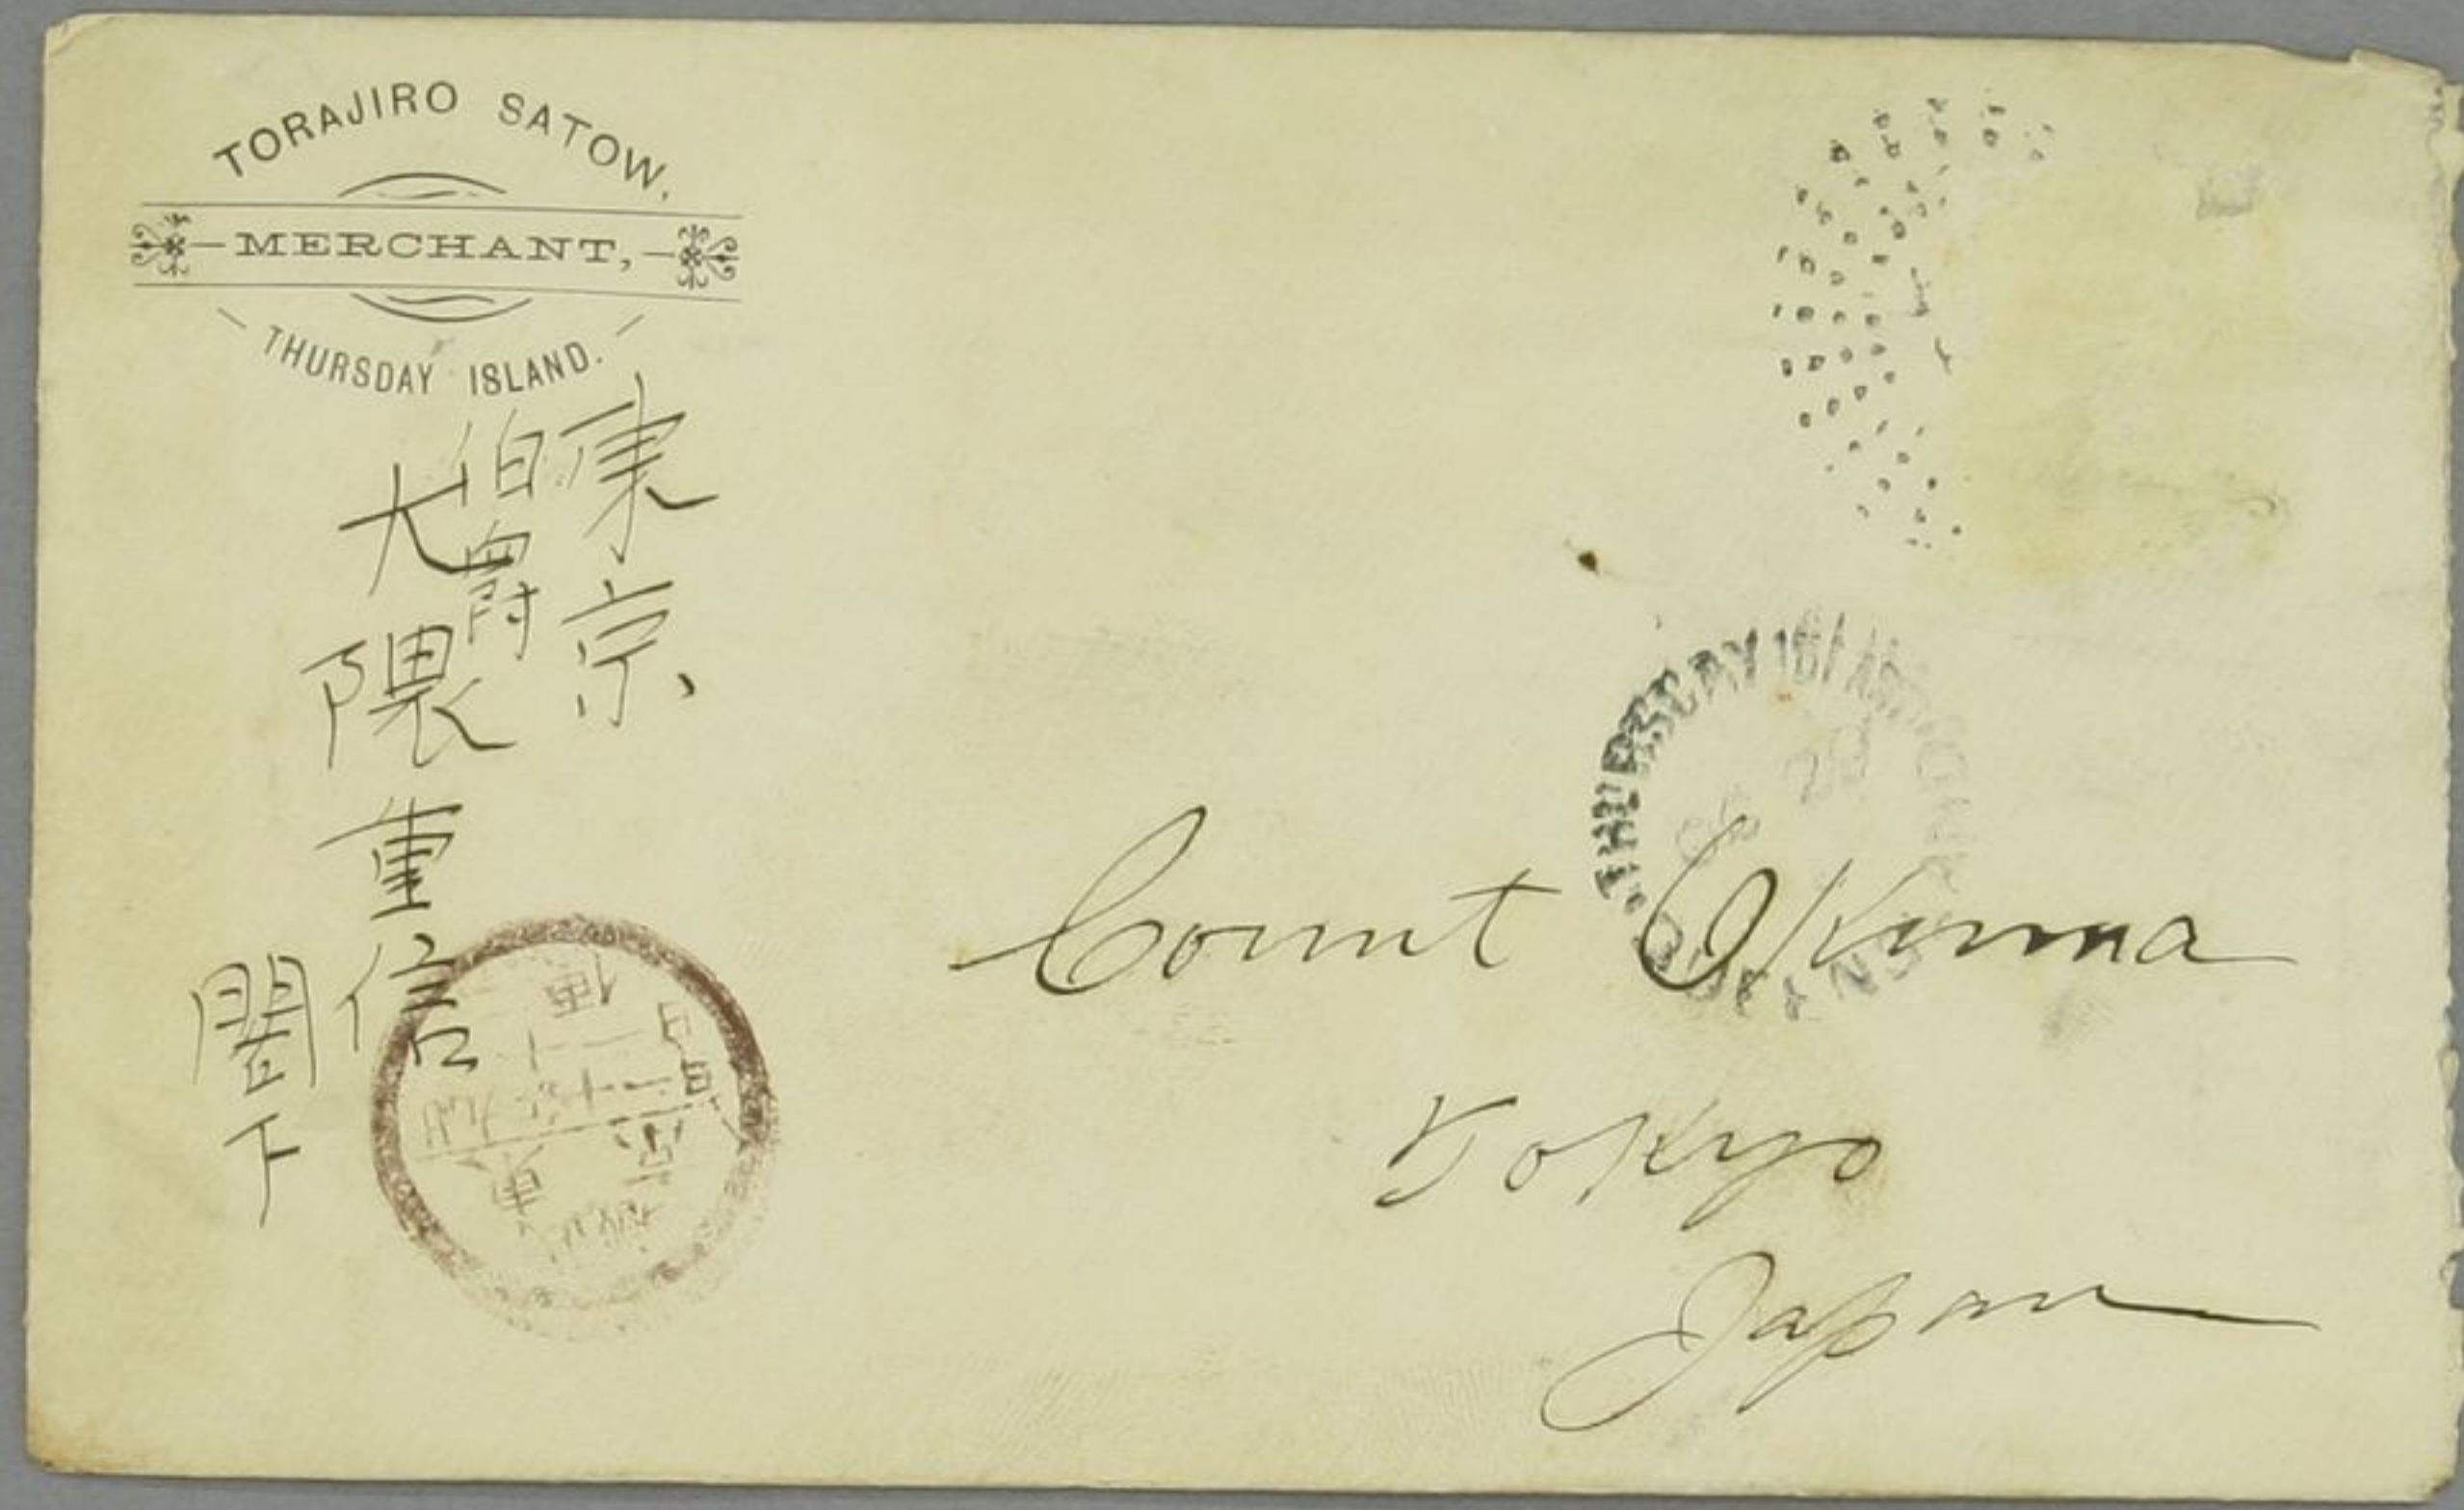 TORAJIRO SATOW,
MERCHANT,
THURSDAY ISLAND.
東京
伯爵
大隈重信
閣下
THURSDAY ISLAND
Count Okuma
Tokyo
Japan